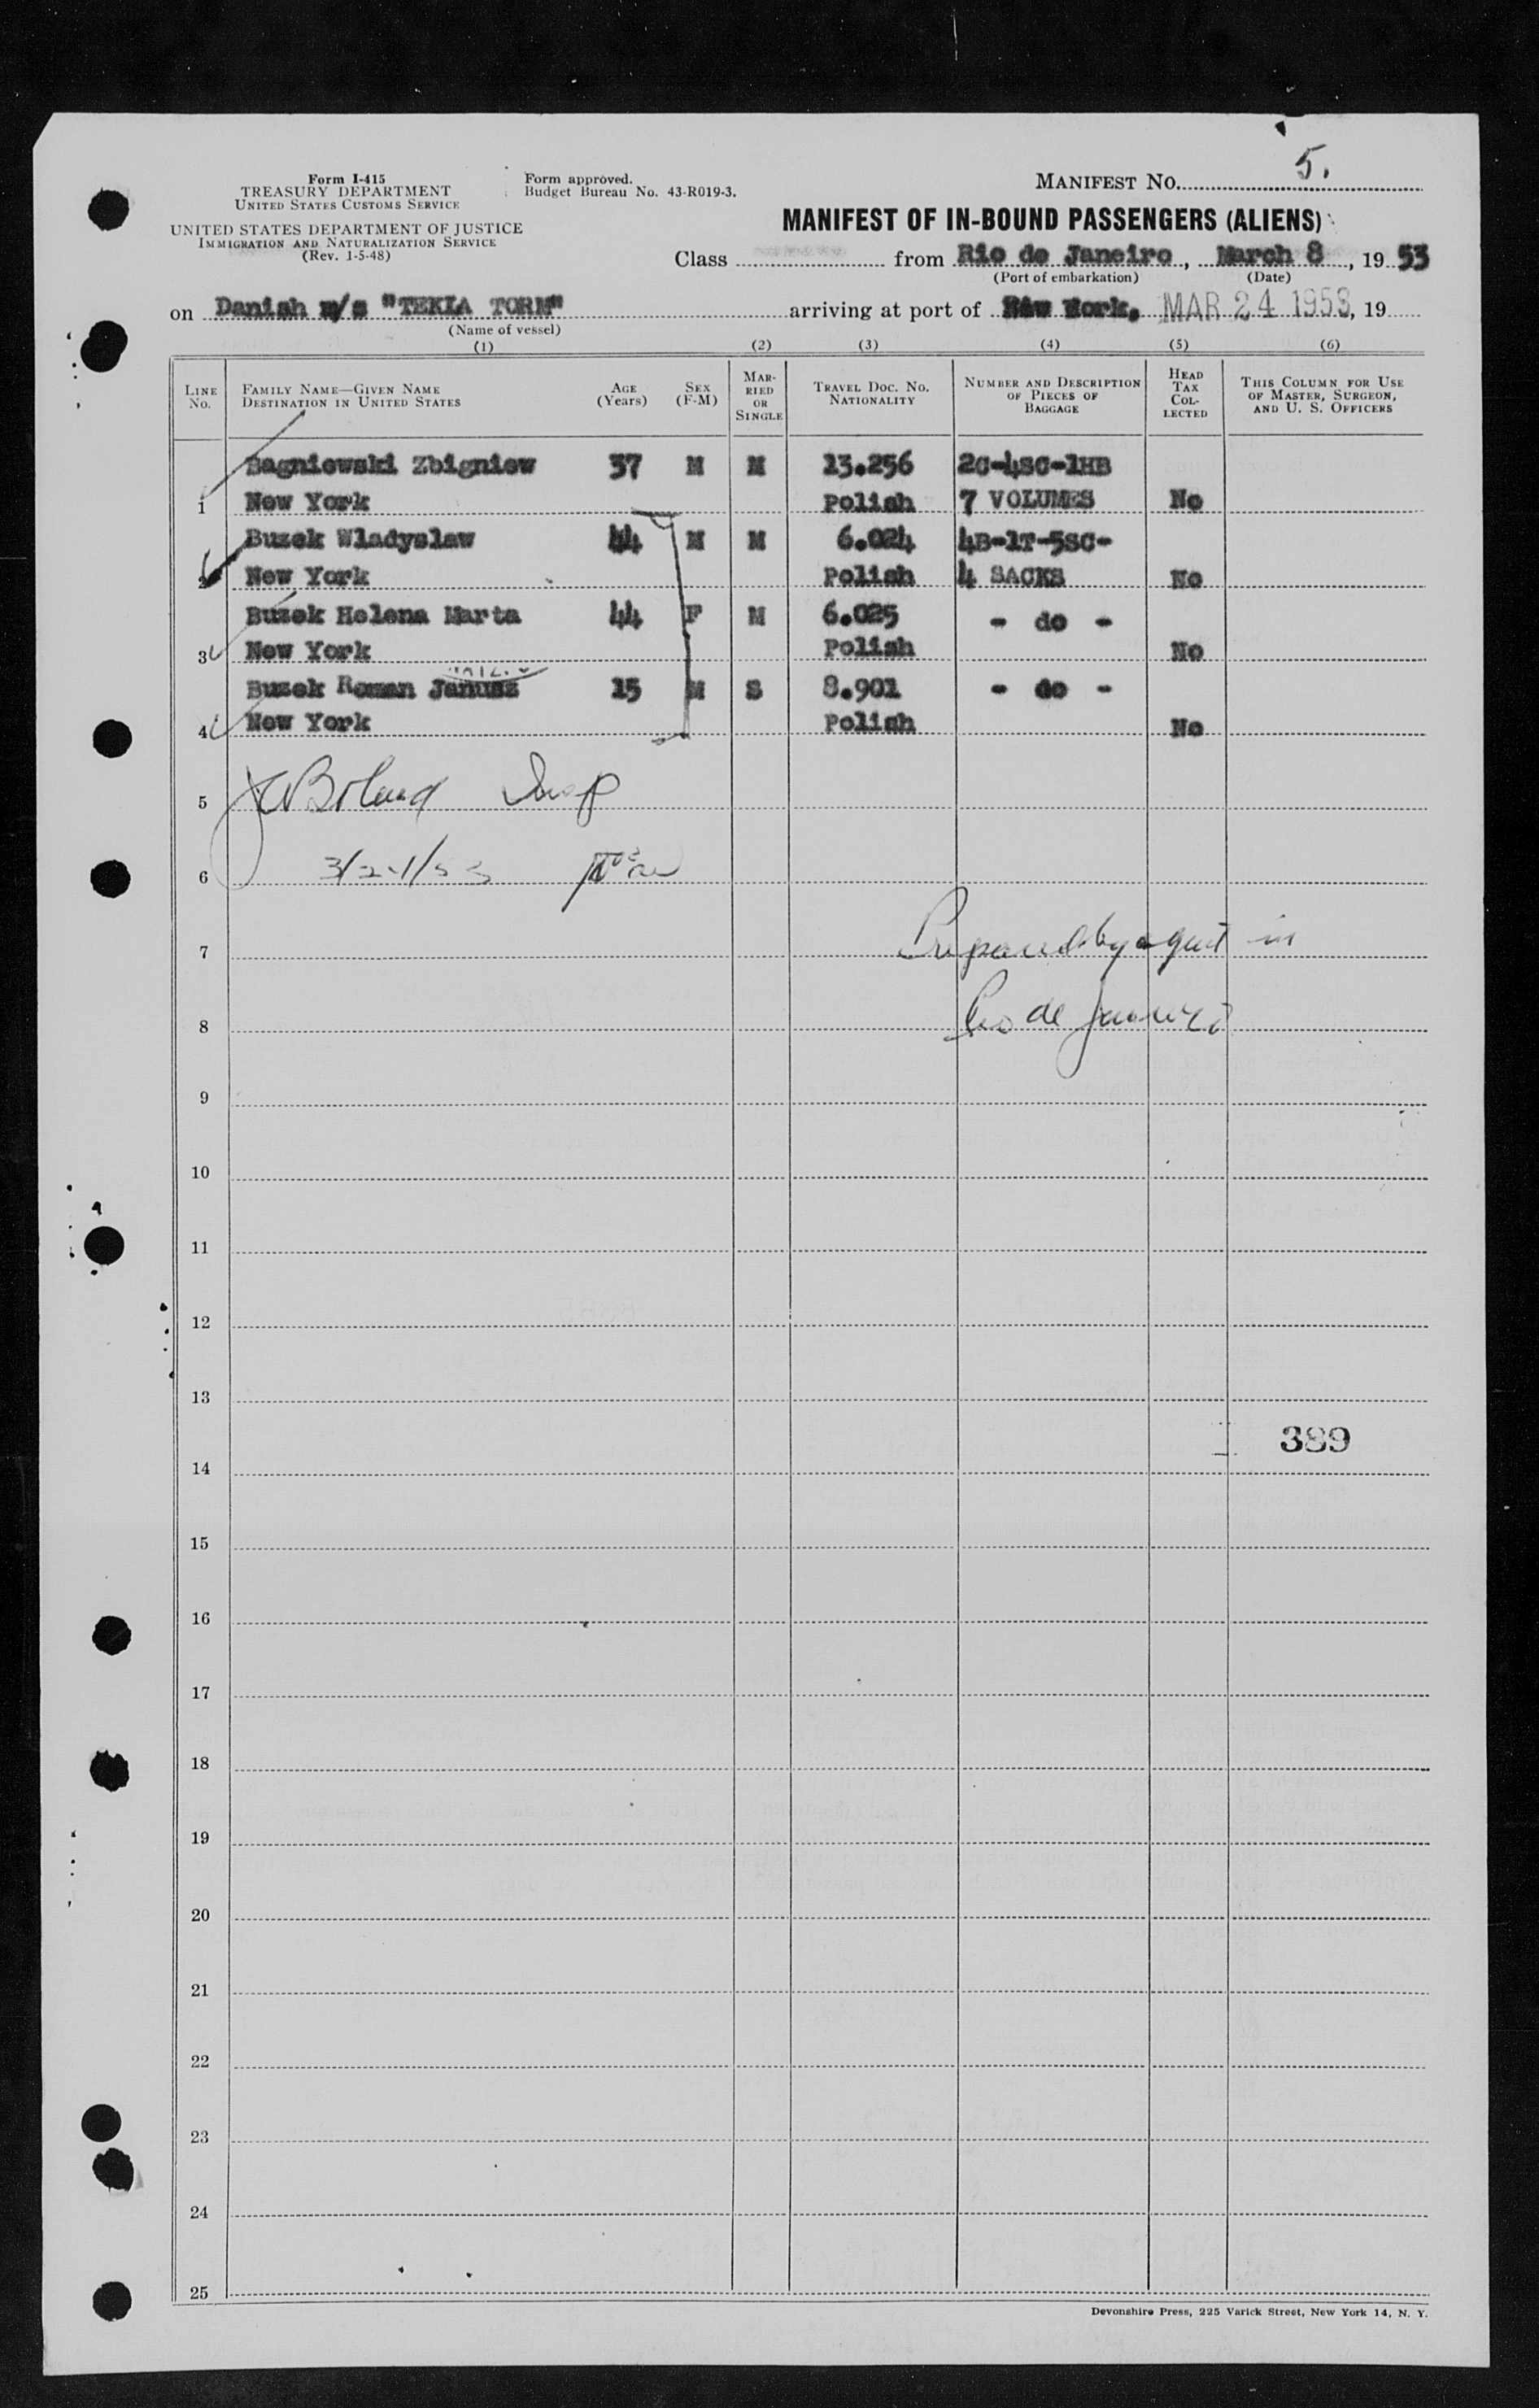 Form I-415
TREASURY DEPARTMENT
UNITED STATES CUSTOMS SERVICE
UNITED STATES DEPARTMENT OF JUSTICE
IMMIGRATION AND NATURALIZATION SERVICE
(Rev. 1-5-48)
Form approved.
Budget Bureau No. 43-R019-3.
MANIFEST NO. 5.
MANIFEST OF IN-BOUND PASSENGERS (ALIENS)
Class from Rio de Janeiro, March 8, 19 53
(Port of embarkation) (Date)
on Danish m/s "TEKLA TORM" arriving at port of New York, MAR 24 1953, 19
(Name of vessel)
(1) (2) (3) (4) (5) (6)
LINE NO.
FAMILY NAME—GIVEN NAME
DESTINATION IN UNITED STATES
AGE (Years)
SEX (F-M)
MARRIED OR SINGLE
TRAVEL DOC. NO.
NATIONALITY
NUMBER AND DESCRIPTION OF PIECES OF BAGGAGE
HEAD TAX COLLECTED
THIS COLUMN FOR USE OF MASTER, SURGEON, AND U. S. OFFICERS
Zbigniew 37 M M 13.256 2C-4SC-1HB
1 New York Polish 7 VOLUMES No
Buzek Wladyslaw 44 M M 6.024 4B-1T-5SC-
2 New York Polish 4 SACKS No
Buzek Helena Marta 44 F M 6.025 - do -
3 New York Polish No
Buzek Roman Janusz 15 M S 8.901 - do -
4 New York Polish No
5 Boland Insp
6
7 Prepared by agent in
8 Rio de Janeiro
9
10
11
12
13
389
14
15
16
17
18
19
20
21
22
23
24
25
Devonshire Press, 225 Varick Street, New York 14, N. Y.